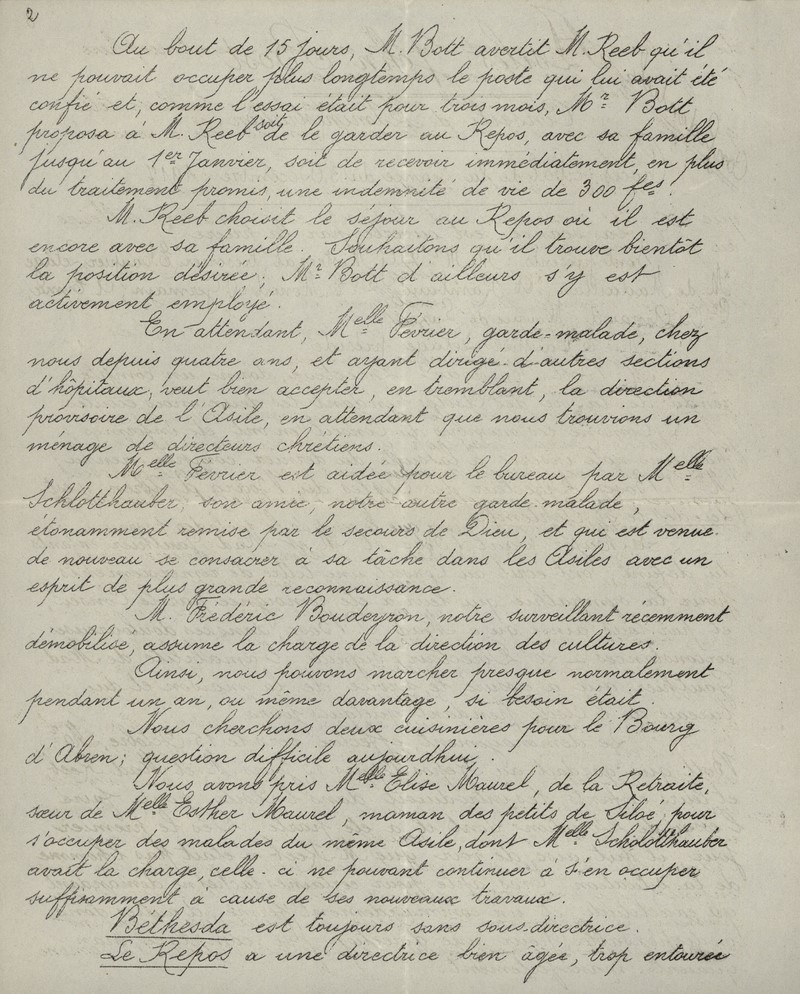 2
Au bout de 15 jours, M. Bott avertit M. Reeb qu'il
ne pouvait occuper plus longtemps le poste qui lui avait été
confié et, comme l'essai était pour trois mois, Mr Bott
proposa à M. Reeb soit de le garder au Repos, avec sa famille
jusqu'au 1er Janvier, soit de recevoir immédiatement, en plus
du traitement promis, une indemnité de vie de 300 fcs.
M. Reeb choisit le séjour au Repos où il est
encore avec sa famille. Souhaitons qu'il trouve bientôt
la position désirée; Mr Bott d'ailleurs s'y est
activement employé.
En attendant, Melle Février, garde-malade, chez
nous depuis quatre ans, et ayant dirigé d'autres sections
d'hôpitaux, veut bien accepter, en tremblant, la direction
provisoire de l'Asile, en attendant que nous trouvions un
ménage de directeurs chrétiens.
Melle Février est aidée pour le bureau par Melle
Schlotthauber, son amie, notre autre garde-malade,
étonamment remise par le secours de Dieu, et qui est venue
de nouveau se consacrer à sa tâche dans les Asiles avec un
esprit de plus grande reconnaissance.
M. Frédéric Boudeyron, notre surveillant récemment
démobilisé, assume la charge de la direction des cultures.
Ainsi, nous pouvons marcher presque normalement
pendant un an, ou même davantage, si besoin était.
Nous cherchons deux cuisinières pour le Bourg
d'Abren; question difficile aujourdhui.
Nous avons pris Melle Elise Maurel, de la Retraite,
sœur de Melle Esther Maurel, maman des petits de Siloé, pour
s'occuper des malades du même Asile, dont Melle Scholotthauber
avait la charge, celle-ci ne pouvant continuer à s'en occuper
suffisamment à cause de ses nouveaux travaux.
Béthesda est toujours sans sous-directrice.
Le Repos a une directrice bien âgée, trop entourée